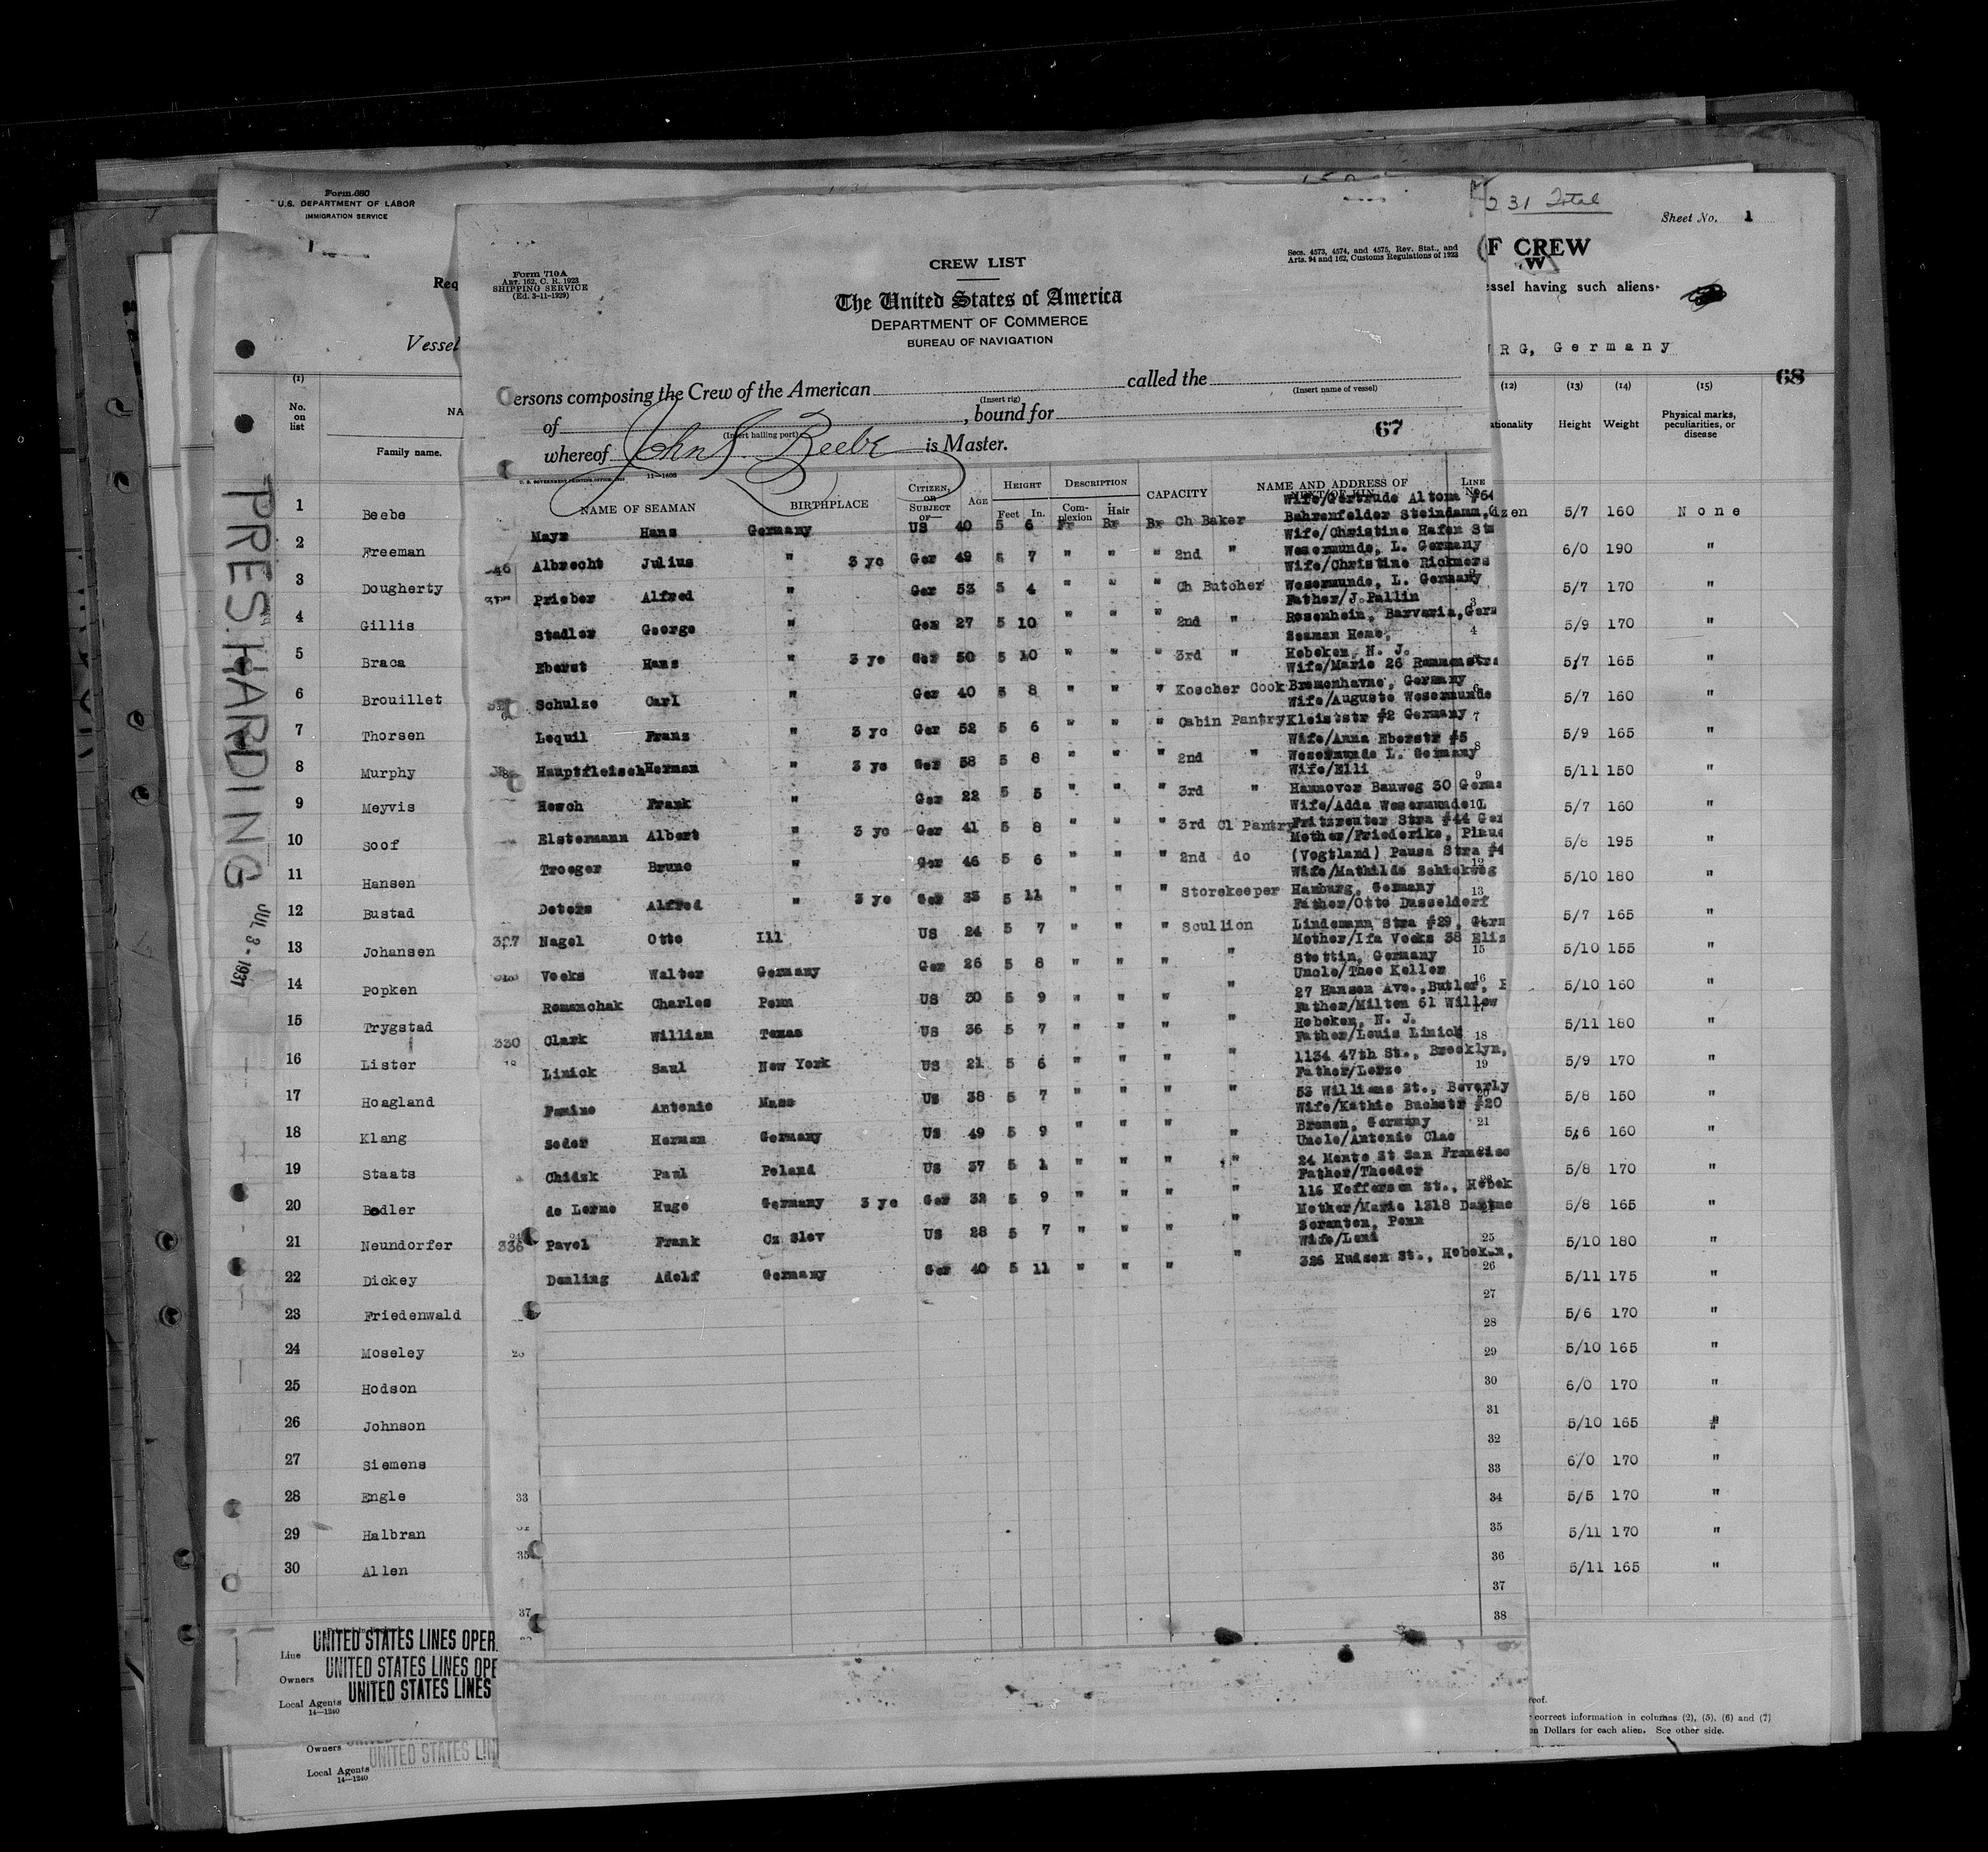 231 Total
Sheet No. 1
Form 680
U.S. DEPARTMENT OF LABOR
IMMIGRATION SERVICE
F CREW
W
ssel having such aliens
Req
Vessel
RG, Germany
68
PRES. HARDING JUL 3 - 1931
(1)
No.
on
list
NA
Family name.
1 Beebe
2 Freeman
3 Dougherty
4 Gillis
5 Braca
6 Brouillet
7 Thorsen
8 Murphy
9 Meyvis
10 Soof
11 Hansen
12 Bustad
13 Johansen
14 Popken
15 Trygstad
16 Lister
17 Hoagland
18 Klang
19 Staats
20 Bodler
21 Neundorfer
22 Dickey
23 Friedenwald
24 Moseley
25 Hodson
26 Johnson
27 Siemens
28 Engle
29 Halbran
30 Allen
Line UNITED STATES LINES OPER.
Owners UNITED STATES LINES OPE
Local Agents UNITED STATES LINES
14—1240
Owners
Local Agents UNITED STATES LIN
14—1240
Form 710A
Art. 162, C. R. 1923
SHIPPING SERVICE
(Ed. 3-11-1929)
CREW LIST
Secs. 4573, 4574, and 4575, Rev. Stat., and
Arts. 94 and 162, Customs Regulations of 1923
The United States of America
DEPARTMENT OF COMMERCE
BUREAU OF NAVIGATION
ersons composing the Crew of the American called the
(Insert rig) (Insert name of vessel)
of , bound for
(Insert hailing port)
67
whereof John S. Beebe is Master.
U. S. GOVERNMENT PRINTING OFFICE 11—1608
NAME OF SEAMAN BIRTHPLACE CITIZEN, OR SUBJECT OF— AGE HEIGHT Feet In. DESCRIPTION Complexion Hair CAPACITY NAME AND ADDRESS OF NEXT OF KIN LINE No.
Wife/Gertrude Altona #64
Mayr Hans Germany US 40 5 6 Fr Br Br Ch Baker Bahrenfelder Steindamm,G
Wife/Christine Hafen Str
46 Albrecht Julius " 3 yc Ger 49 5 7 " " " 2nd " Wesermunde, L. Germany
Wife/Christine Rickmers
Prieber Alfred " Ger 53 5 4 " " " Ch Butcher Wesermunde, L. Germany
Father/J.Pallin
Stadler George " Ger 27 5 10 " " " 2nd " Rosenheim, Barvaria,Germ
Seaman Home,
Eberst Hans " 3 yc Ger 50 5 10 " " " 3rd " Hoboken, N. J.
Wife/Marie 26 Rammonstra
Schulze Carl " Ger 40 5 8 " " " Koscher Cook Bremenhavne, Germany
Wife/Auguste Wesermunde
Lequil Franz " 3 yc Ger 52 5 6 " " " Cabin Pantry Kleiststr #2 Germany
Wife/Anna Eberstr #5
Hauptfleisch Herman " 3 yc Ger 38 5 8 " " " 2nd " Wesermunde L. Germany
Wife/Elli
Hesch Frank " Ger 22 5 5 " " " 3rd " Hannover Bauweg 30 Germa
Wife/Adda Wesermunde L
Elstermann Albert " 3 yc Ger 41 5 8 " " " 3rd Cl Pantry Fritzreuter Stra #44 Ger
Mother/Friederike, Plaue
Troeger Bruno " Ger 46 5 6 " " " 2nd do (Vogtland) Pausa Stra #4
Wife/Mathilde Schiekweg
Deters Alfred " 3 yc Ger 33 5 11 " " " Storekeeper Hamburg, Germany
Father/Otto Dusseldorf
327 Nagel Otto Ill US 24 5 7 " " " Scullion Lindemann Stra #29, Germ
Mother/Ifa Vecks 38 Eliz
Vecks Walter Germany Ger 26 5 8 " " " " Stettin, Germany
Uncle/Theo Keller
Romanchak Charles Penn US 30 5 9 " " " " 27 Hansen Ave.,Butler, P
Father/Milton 61 Willow
330 Clark William Texas US 36 5 7 " " " " Hoboken, N. J.
Father/Louis Linick
Linick Saul New York US 21 5 6 " " " " 1134 47th St., Brooklyn,
Father/Lorzo
Antonio Mass US 38 5 7 " " " " 53 Williams St., Beverly
Wife/Kathie Buchstr #20
Seder Herman Germany US 49 5 9 " " " " Bremen, Germany
Uncle/Antonio Clao
Chidzk Paul Poland US 37 5 1 " " " " 24 Monte St San Francisc
Father/Theodor
de Lorme Hugo Germany 3 yc Ger 32 5 9 " " " " 116 Jefferson St., Hobok
Mother/Marie 1318
336 Pavel Frank Cz Slov US 28 5 7 " " " " Scranton, Penn
Wife/Leni
Demling Adolf Germany Ger 40 5 11 " " " " 326 Hudson St., Hoboken,
25
26
27
28
29
30
31
32
33
34
35
36
37
38
33
35
37
(12) (13) (14) (15)
ationality Height Weight Physical marks, peculiarities, or disease
izen 5/7 160 None
6/0 190 "
5/7 170 "
5/9 170 "
5/7 165 "
5/7 160 "
5/9 165 "
5/11 150 "
5/7 160 "
5/8 195 "
5/10 180 "
5/7 165 "
5/10 155 "
5/10 160 "
5/11 180 "
5/9 170 "
5/8 150 "
5/6 160 "
5/8 170 "
5/8 165 "
5/10 180 "
5/11 175 "
5/6 170 "
5/10 165 "
6/0 170 "
5/10 165 "
6/0 170 "
5/5 170 "
5/11 170 "
5/11 165 "
roof.
correct information in columns (2), (5), (6) and (7)
en Dollars for each alien. See other side.